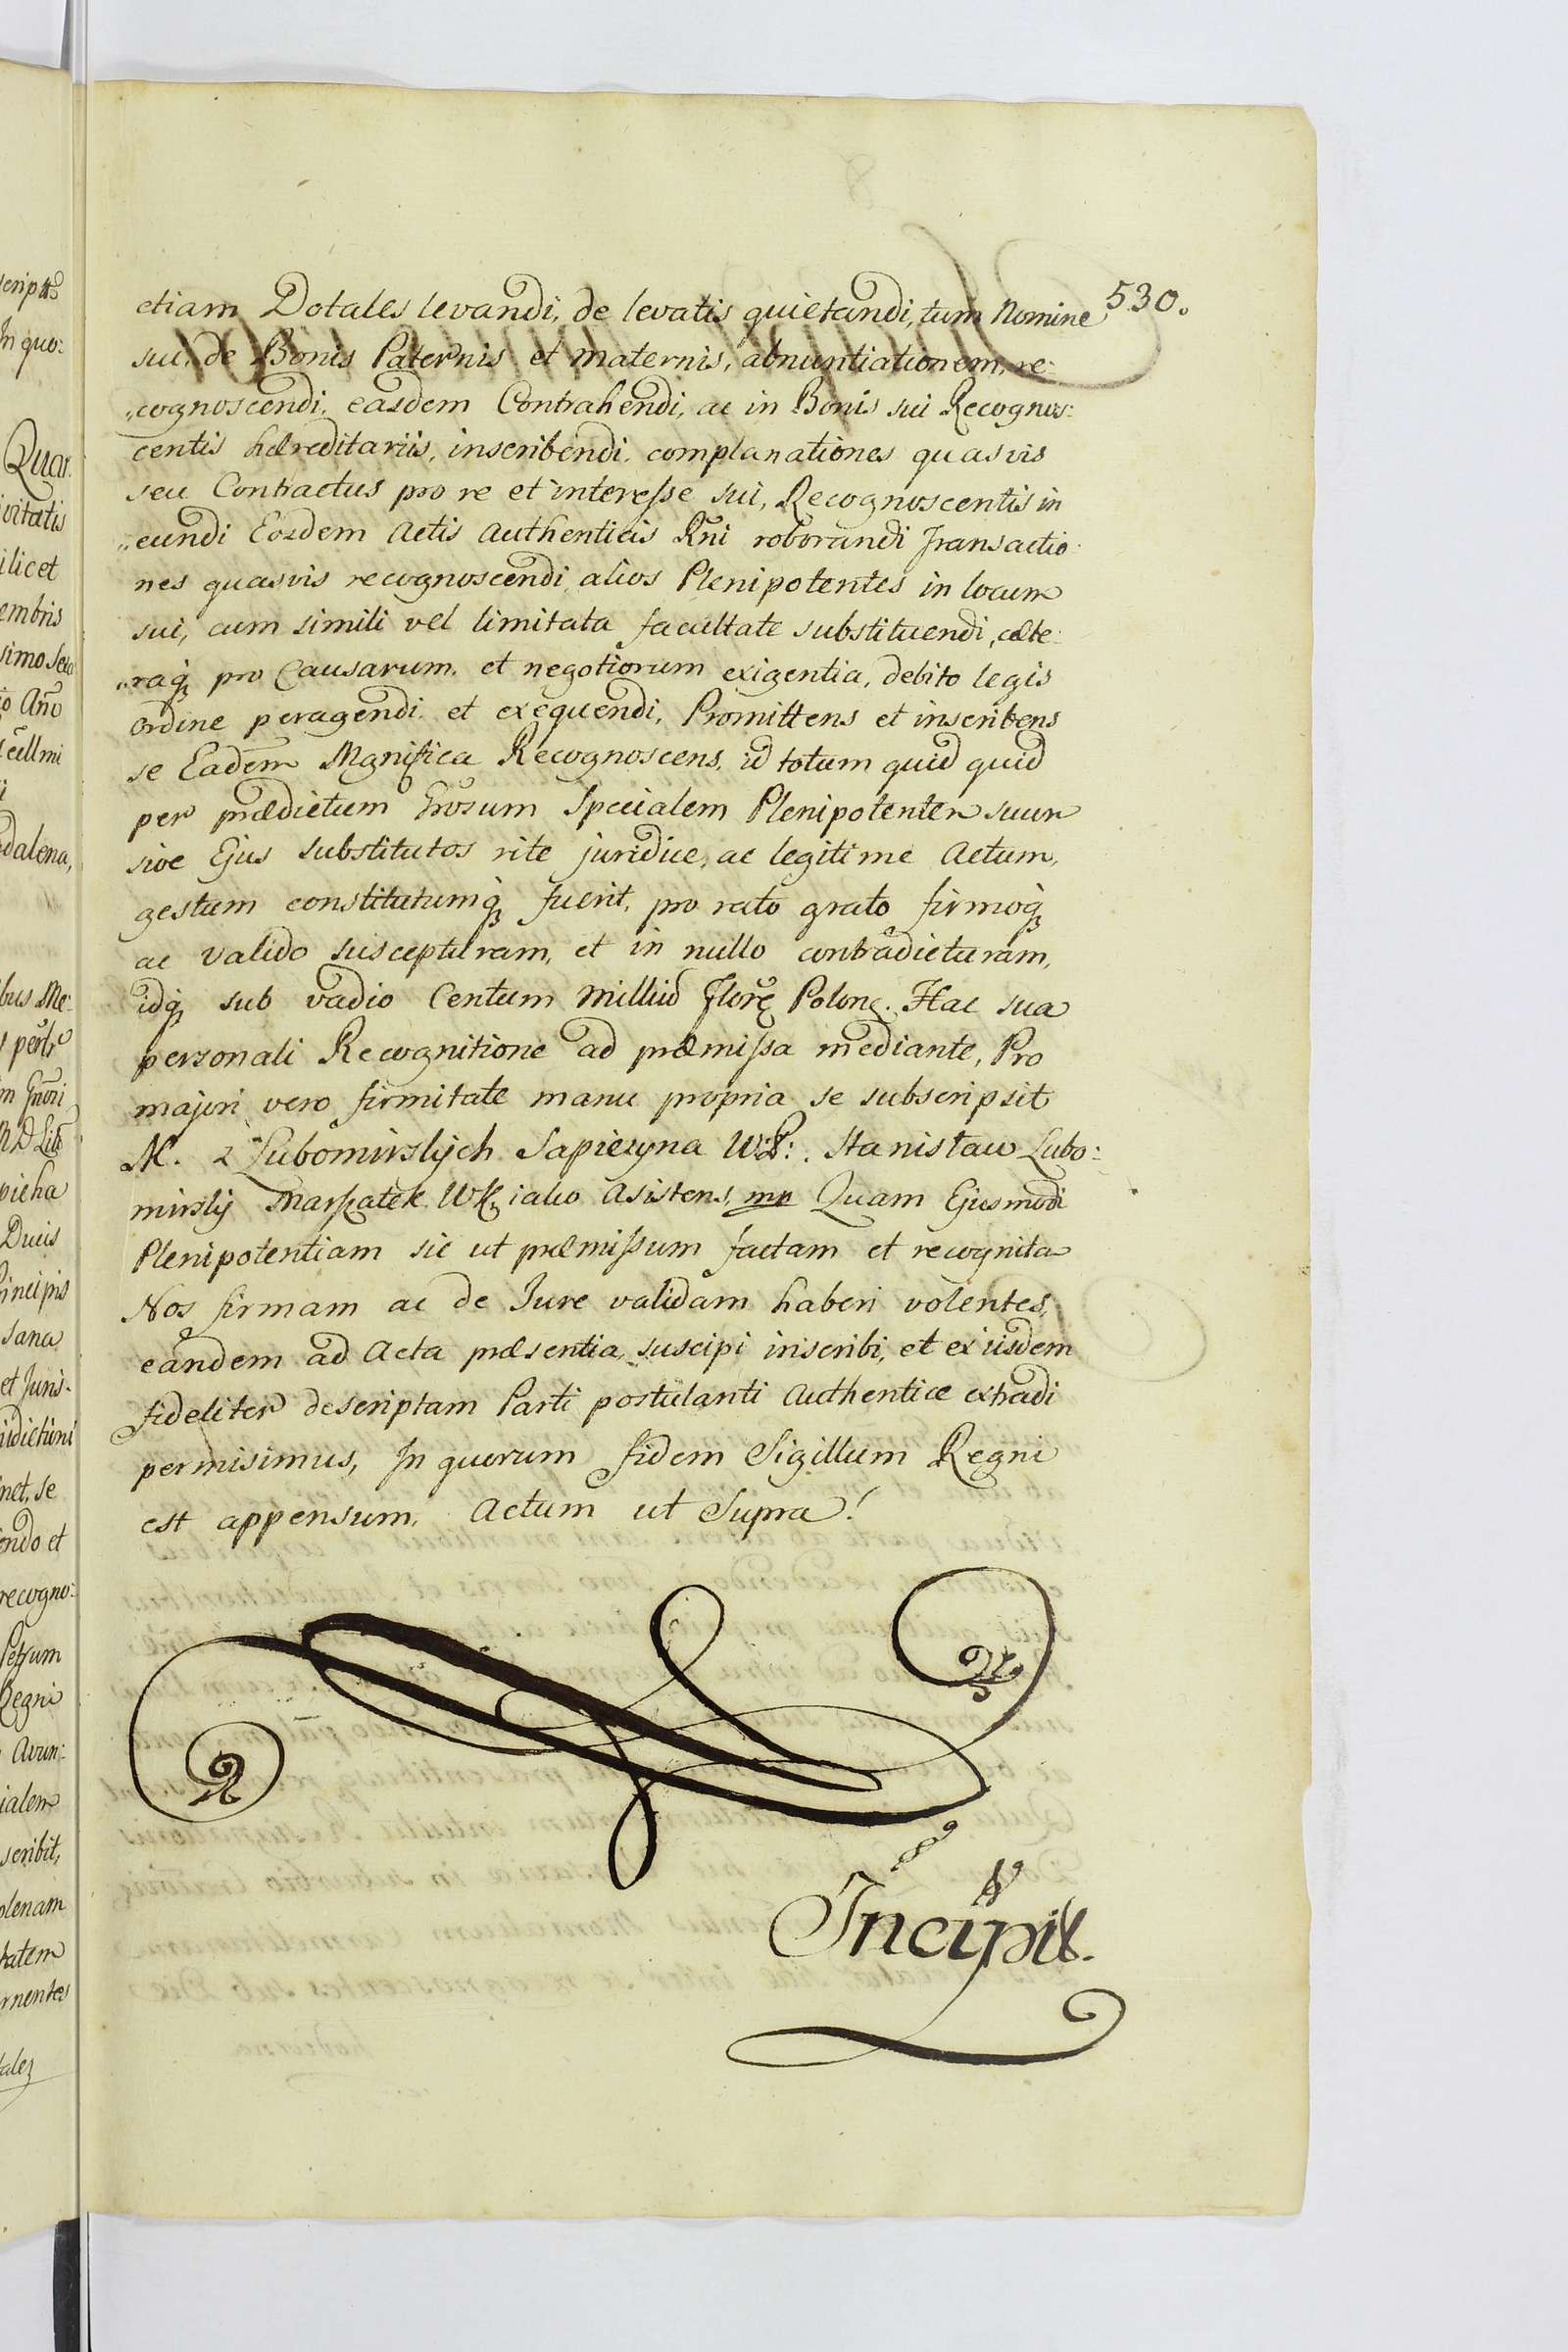 530.
etiam Dotales levandi, de levatis quietandi, tum Nomine
sui, de Bonis Paternis et maternis, abnuntiationem, re:
„cognoscendi, easdem Contrahendi, ac in Bonis sui Recognos:
centis hæreditariis, inscribendi, complanationes quasvis
seu Contractus pro re et interesse sui, Recognoscentis in
„eundi Eosdem Actis Authenticis Rñi roborandi Transactio:
nes quasvis recognoscendi, alios Plenipotentes in locum
sui, cum simili vel limitata facultate substituendi, cæte:
„raq; pro Causarum, et negotiorum exigentia, debito legis
Ordine peragendi, et exequendi, Promittens et inscribens
se Eadem Mgnifica Recognoscens, id totum quid quid
per prædictum Grosum Specialem Plenipotentem suum
sive Ejus substitutos rite juridice, ac legitime Actum,
gestum constitutumq; fuerit, pro rato grato firmoq;
ac valido suscepturam, et in nullo contradicturam,
idq; sub vadio Centum Milliũ Flore Polone. Hac sua
personali Recognitione ad præmissa mediante, Pro
majori vero firmitate manu propria se subscripsit
M. z Lubomirskich Sapiezyna W:L:. Stanisław Lubo:
mirsky Marszałek WK, iako Asistens, mp Quam Ejusmodi
Plenipotentiam sic ut præmissum factam et recognita
Nos firmam ac de Jure validam haberi volentes,
eandem ad Acta præsentia, suscipi inscribi, et ex iisdem
fideliter descriptam Parti postulanti Authentice extradi
permisimus, In quorum fidem Sigillum Regni
est appensum. Actum ut Supra!
Incipit.
scriptũ
In quo:
Quar.
ivitatis
ilicet
embris
simo Secũ
io Añο
dalena,
bus Me:
picha
Ducis
Principis
sana
et Juris-
net, se
endo et
recogno:
Petrum
Regni
Avun:
ialem
scribit,
plenam
tatem
rnentes
tales